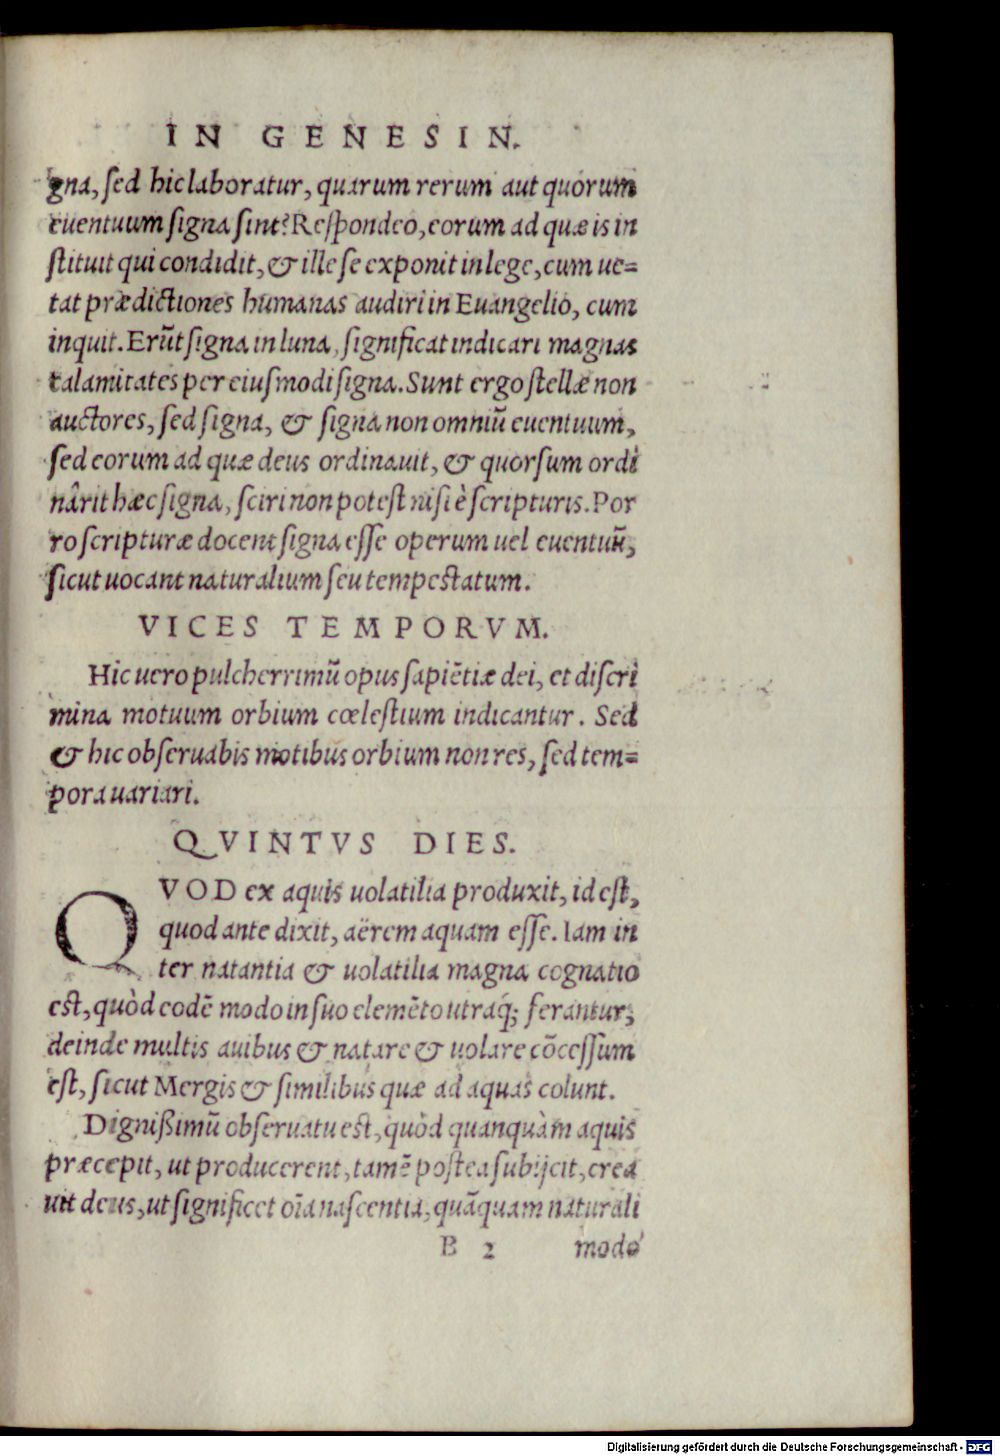 IN GENESIN.
gna, ſed hic laboratur, quarum rerum aut quorum
euentuum ſigna ſint? Reſpondeo, eorum ad quæ is in
ſtituit qui condidit, & ille ſe exponit in lege, cum ue=
tat prædictiones humanas audiri in Euangelio, cum
inquit. Erūt ſigna in luna, ſignificat indicari magnas
calamitates per eiuſmodi ſigna. Sunt ergo ſtellæ non
auctores, ſed ſigna, & ſigna non omniū euentuum,
ſed eorum ad quæ deus ordinauit, & quorſum ordi
nârit hæc ſigna, ſciri non poteſt niſi è ſcripturis. Por
ro ſcripturæ docent ſigna eſſe operum uel euentuū,
ſicut uocant naturalium ſeu tempeſtatum.
VICES TEMPORVM.
Hic uero pulcherrimū opus ſapiētiæ dei, et diſcri
mina motuum orbium cœleſtium indicantur. Sed
& hic obſeruabis motibus orbium non res, ſed tem=
pora uariari.
QVINTVS DIES.
QVOD ex aquis uolatilia produxit, id eſt,
quod ante dixit, aërem aquam eſſe. Iam in
ter natantia & uolatilia magna cognatio
eſt, quòd eodē modo in ſuo elemēto utraq́; ferantur,
deinde multis auibus & natare & uolare cōceſſum
eſt, ſicut Mergis & ſimilibus quæ ad aquas colunt.
Digniſſimū obſeruatu eſt, quòd quanquàm aquis
præcepit, ut producerent, tamē poſtea ſubijcit, crea
uit deus, ut ſignificet oīa naſcentia, quāquam naturali
B 2 modo
Digitalisierung gefördert durch die Deutsche Forschungsgemeinschaft - DFG